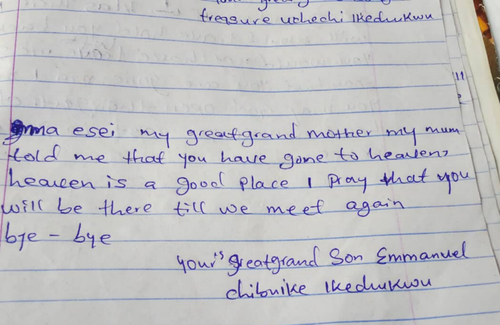 treasure uchechi Ikechukwu
mma esei my greatgrand mother my mum
told me that you have gone to heaven,
heaven is a good place I pray that you
will be there till we meet again
bye - bye
your's greatgrand Son Emmanuel
chibuike Ikechukwu